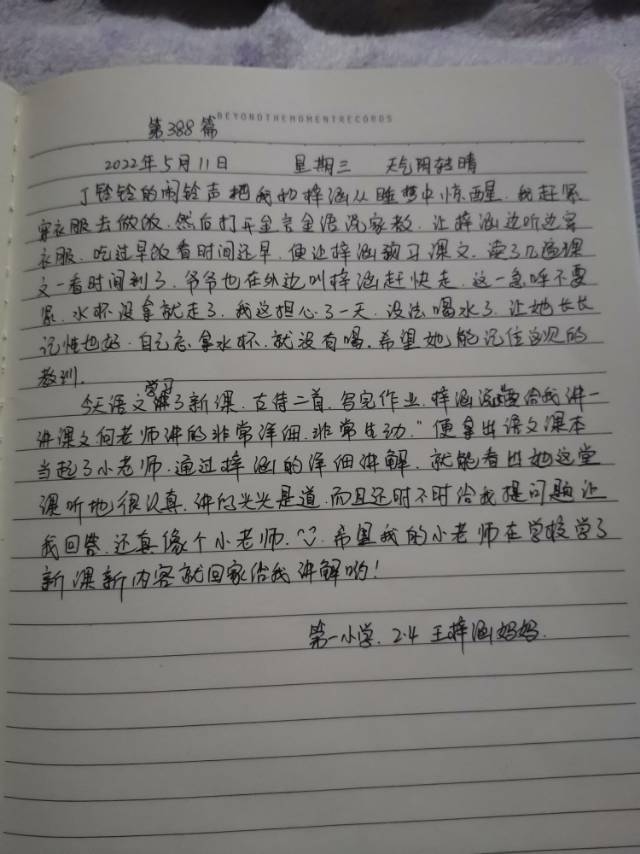 BEYONDTHEMOMENTRECORDS
第388篇
2022年5月11日 星期三 天气阴转晴
丁铃铃的闹铃声把我和梓涵从睡梦中惊醒，我赶紧
穿衣服去做饭，然后打开金言金语说家教，让梓涵边听边穿
衣服，吃过早饭看时间还早，便让梓涵预习课文，读了几遍课
文一看时间到了，爷爷也在外边叫梓涵赶快走，这一急呼不要
紧，水杯没拿就走了，我这担心了一天，没法喝水了，让她长长
记性也好，自己忘拿水杯，就没有喝，希望她能记住这次的
教训。
今天语文学习了新课，古诗二首，写完作业，梓涵说给我讲一
讲课文何老师讲的非常详细，非常生动。”便拿出语文课本
当起了小老师，通过梓涵的详细讲解，就能看出她这堂
课听地很认真，讲的头头是道，而且还时不时给我提问题让
我回答，还真像个小老师，希望我的小老师在学校学了
新课新内容就回家给我讲解哟！
第一小学，2.4 王梓涵妈妈.